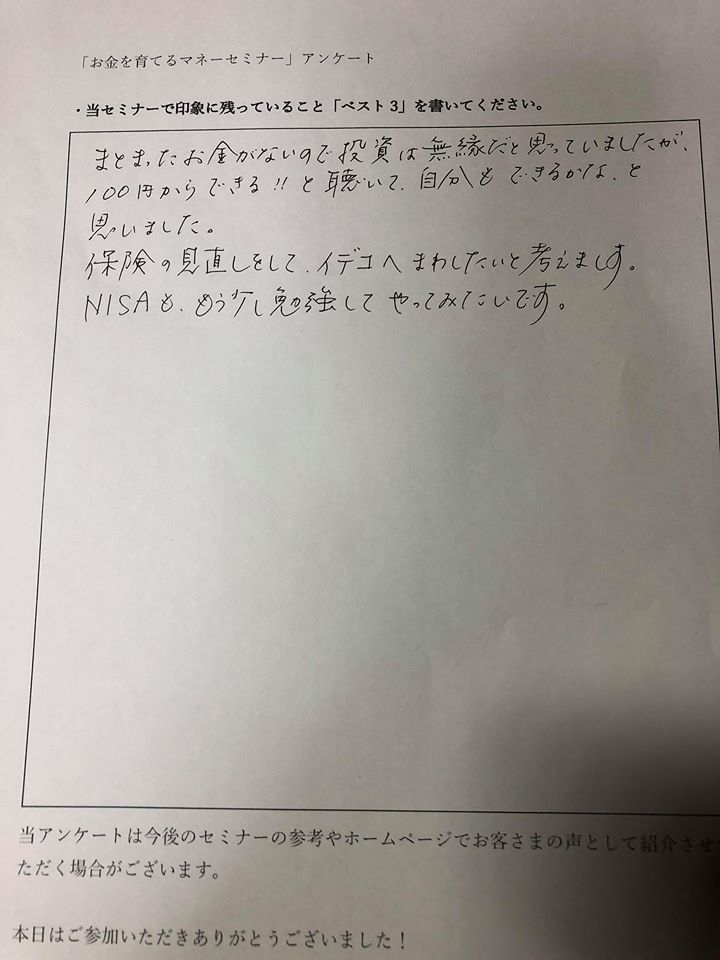 「お金を育てるマネーセミナー」アンケート
・当セミナーで印象に残っていること「ベスト3」を書いてください。
まとまったお金がないので投資は無縁だと思っていましたが、
100円からできる!!と聴いて、自分もできるかな、と
思いました。
保険の見直しをして、イデコへまわしたいと考えます。
NISAも、もう少し勉強してやってみたいです。
当アンケートは今後のセミナーの参考やホームページでお客さまの声として紹介させ
ただく場合がございます。
本日はご参加いただきありがとうございました！